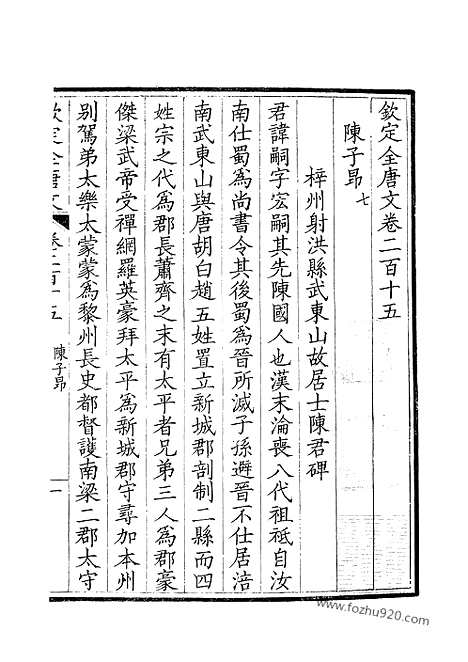 欽定全唐文卷二百十五
陳子昂七
梓州射洪縣武東山故居士陳君碑
君諱嗣字宏嗣其先陳國人也漢末淪喪八代祖祗自汝
南仕蜀為尚書令其後蜀為晉所滅子孫避晉不仕居涪
南武東山與唐胡白趙五姓置立新城郡剖制二縣而四
姓宗之代為郡長蕭齊之末有太平者兄弟三人為郡豪
傑梁武帝受禪網羅英豪拜太平為新城郡守尋加本州
别駕弟太樂太蒙蒙為黎州長史都督護南梁二郡太守
欽定全唐文
卷二百十五
陳子昂
一
www.fozhu920.com